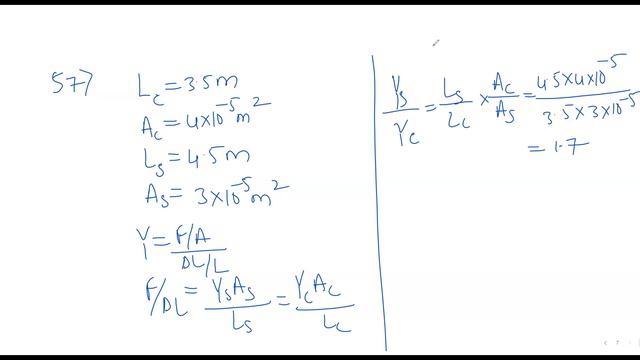 57)
L_c = 3.5m
A_c = 4×10^-5 m^2
L_s = 4.5m
A_s = 3×10^-5 m^2
Y = F/A / DL/L
F/DL = Y_s A_s / L_s = Y_c A_c / L_c
Y_s / Y_c = L_s / L_c × A_c / A_s = 4.5×4×10^-5 / 3.5×3×10^-5
= 1.7
7